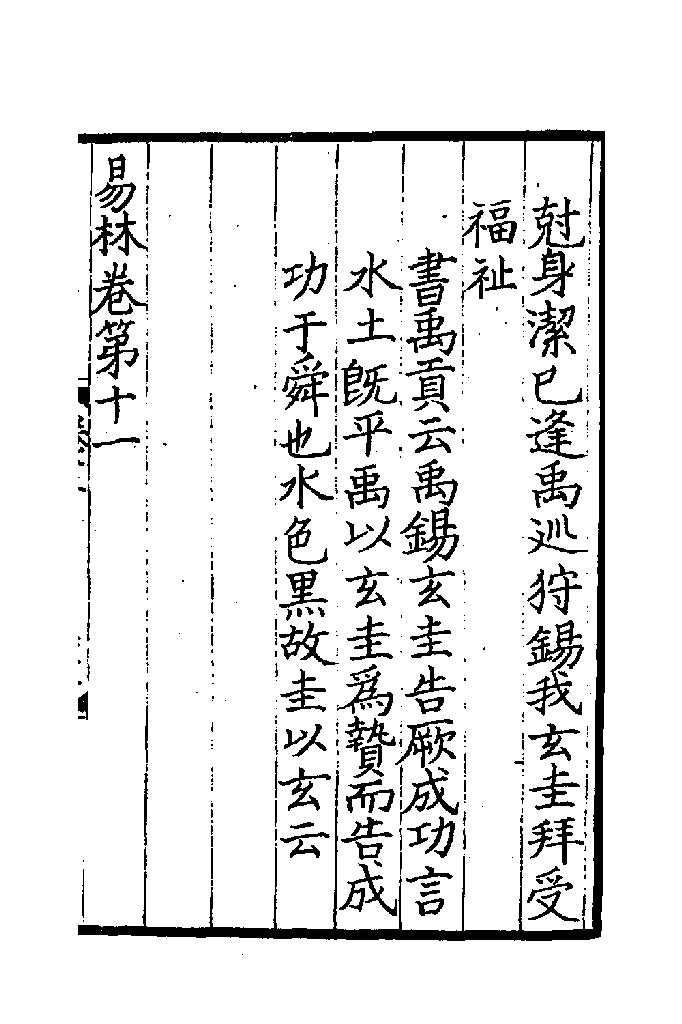 尅身潔已逢禹廵狩錫我玄圭拜受
福祉
書禹貢云禹錫玄圭告厥成功言
水土既平禹以玄圭爲贄而告成
功于舜也水色黒故圭以玄云
易林卷第十一